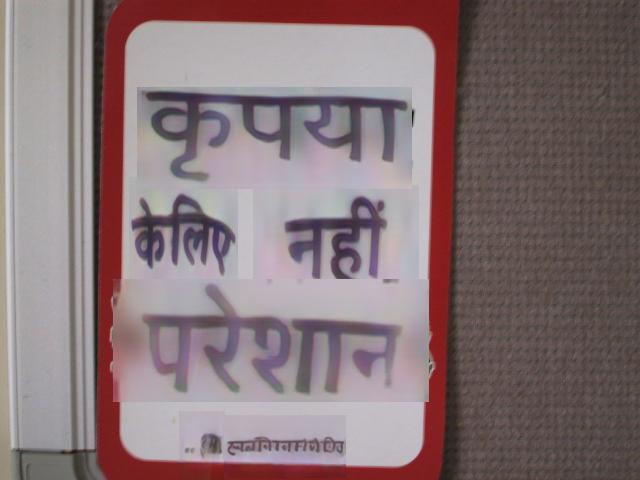 कृपया
के लिए नहीं
परेशान